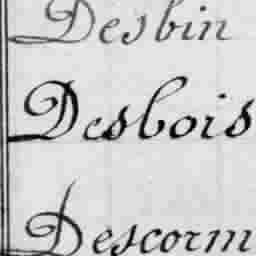 Desbin
Desbois
Descorm